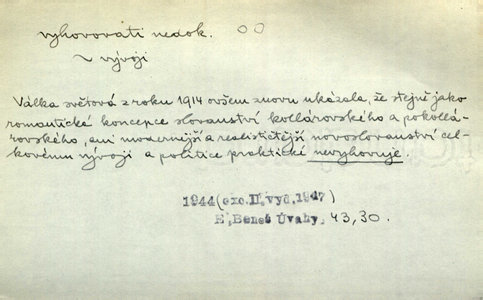 vyhovovati nedok.
~ vývoji
Válka světová z roku 1914 ovšem znovu ukázala, že stejně jako
romantické koncepce slovanství kollárovského a pokollá-
rovského, ani modernější a realističtější novoslovanství cel-
kovému vývoji a politice praktické nevyhovuje.
1944(exc.II,vyd,1947)
E, Beneš Úvahy, 43, 30.